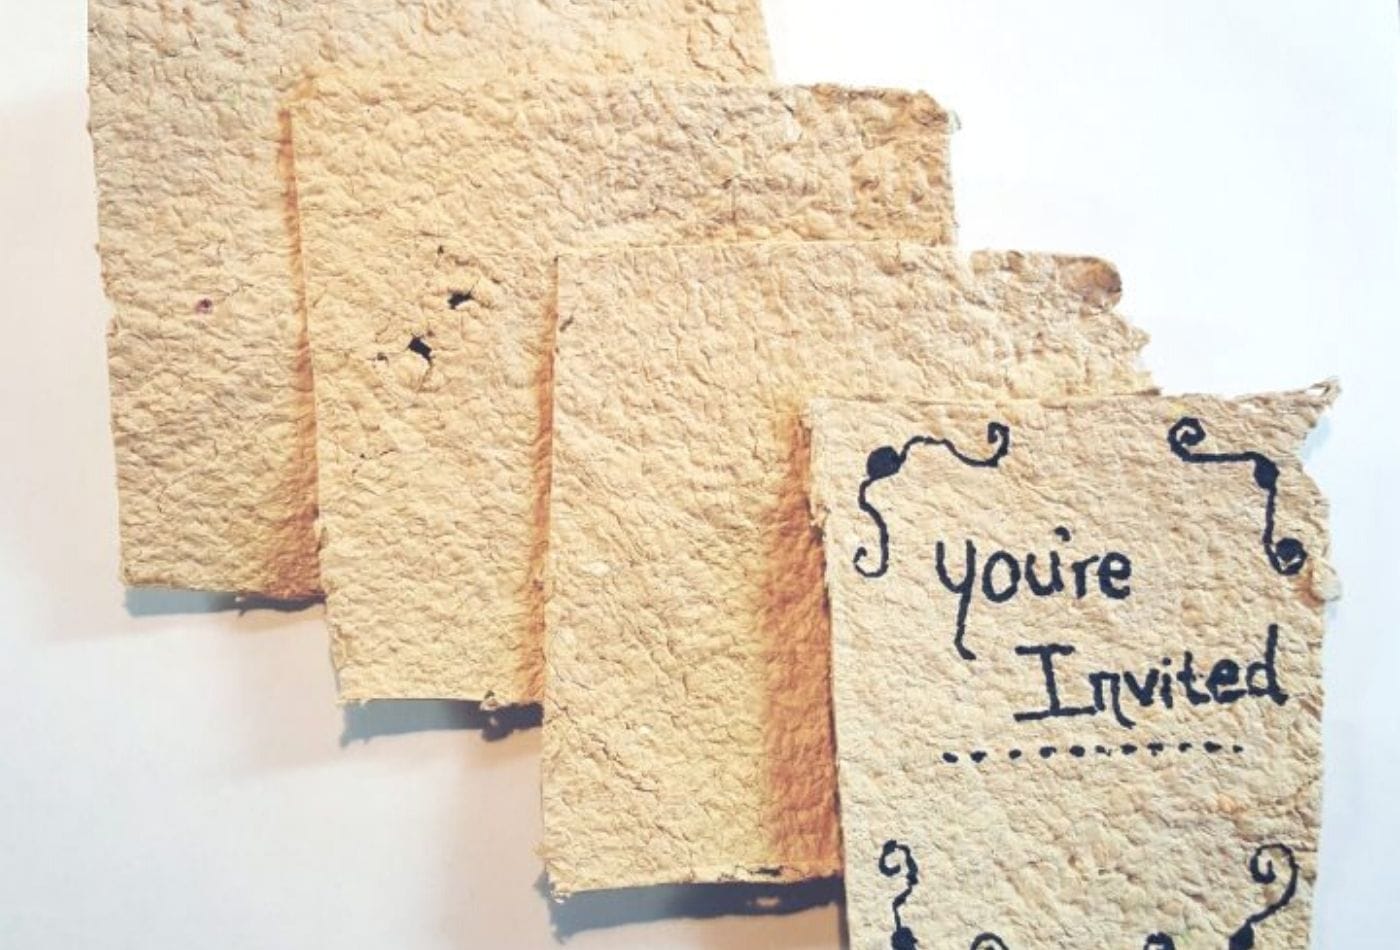 you're
Invited